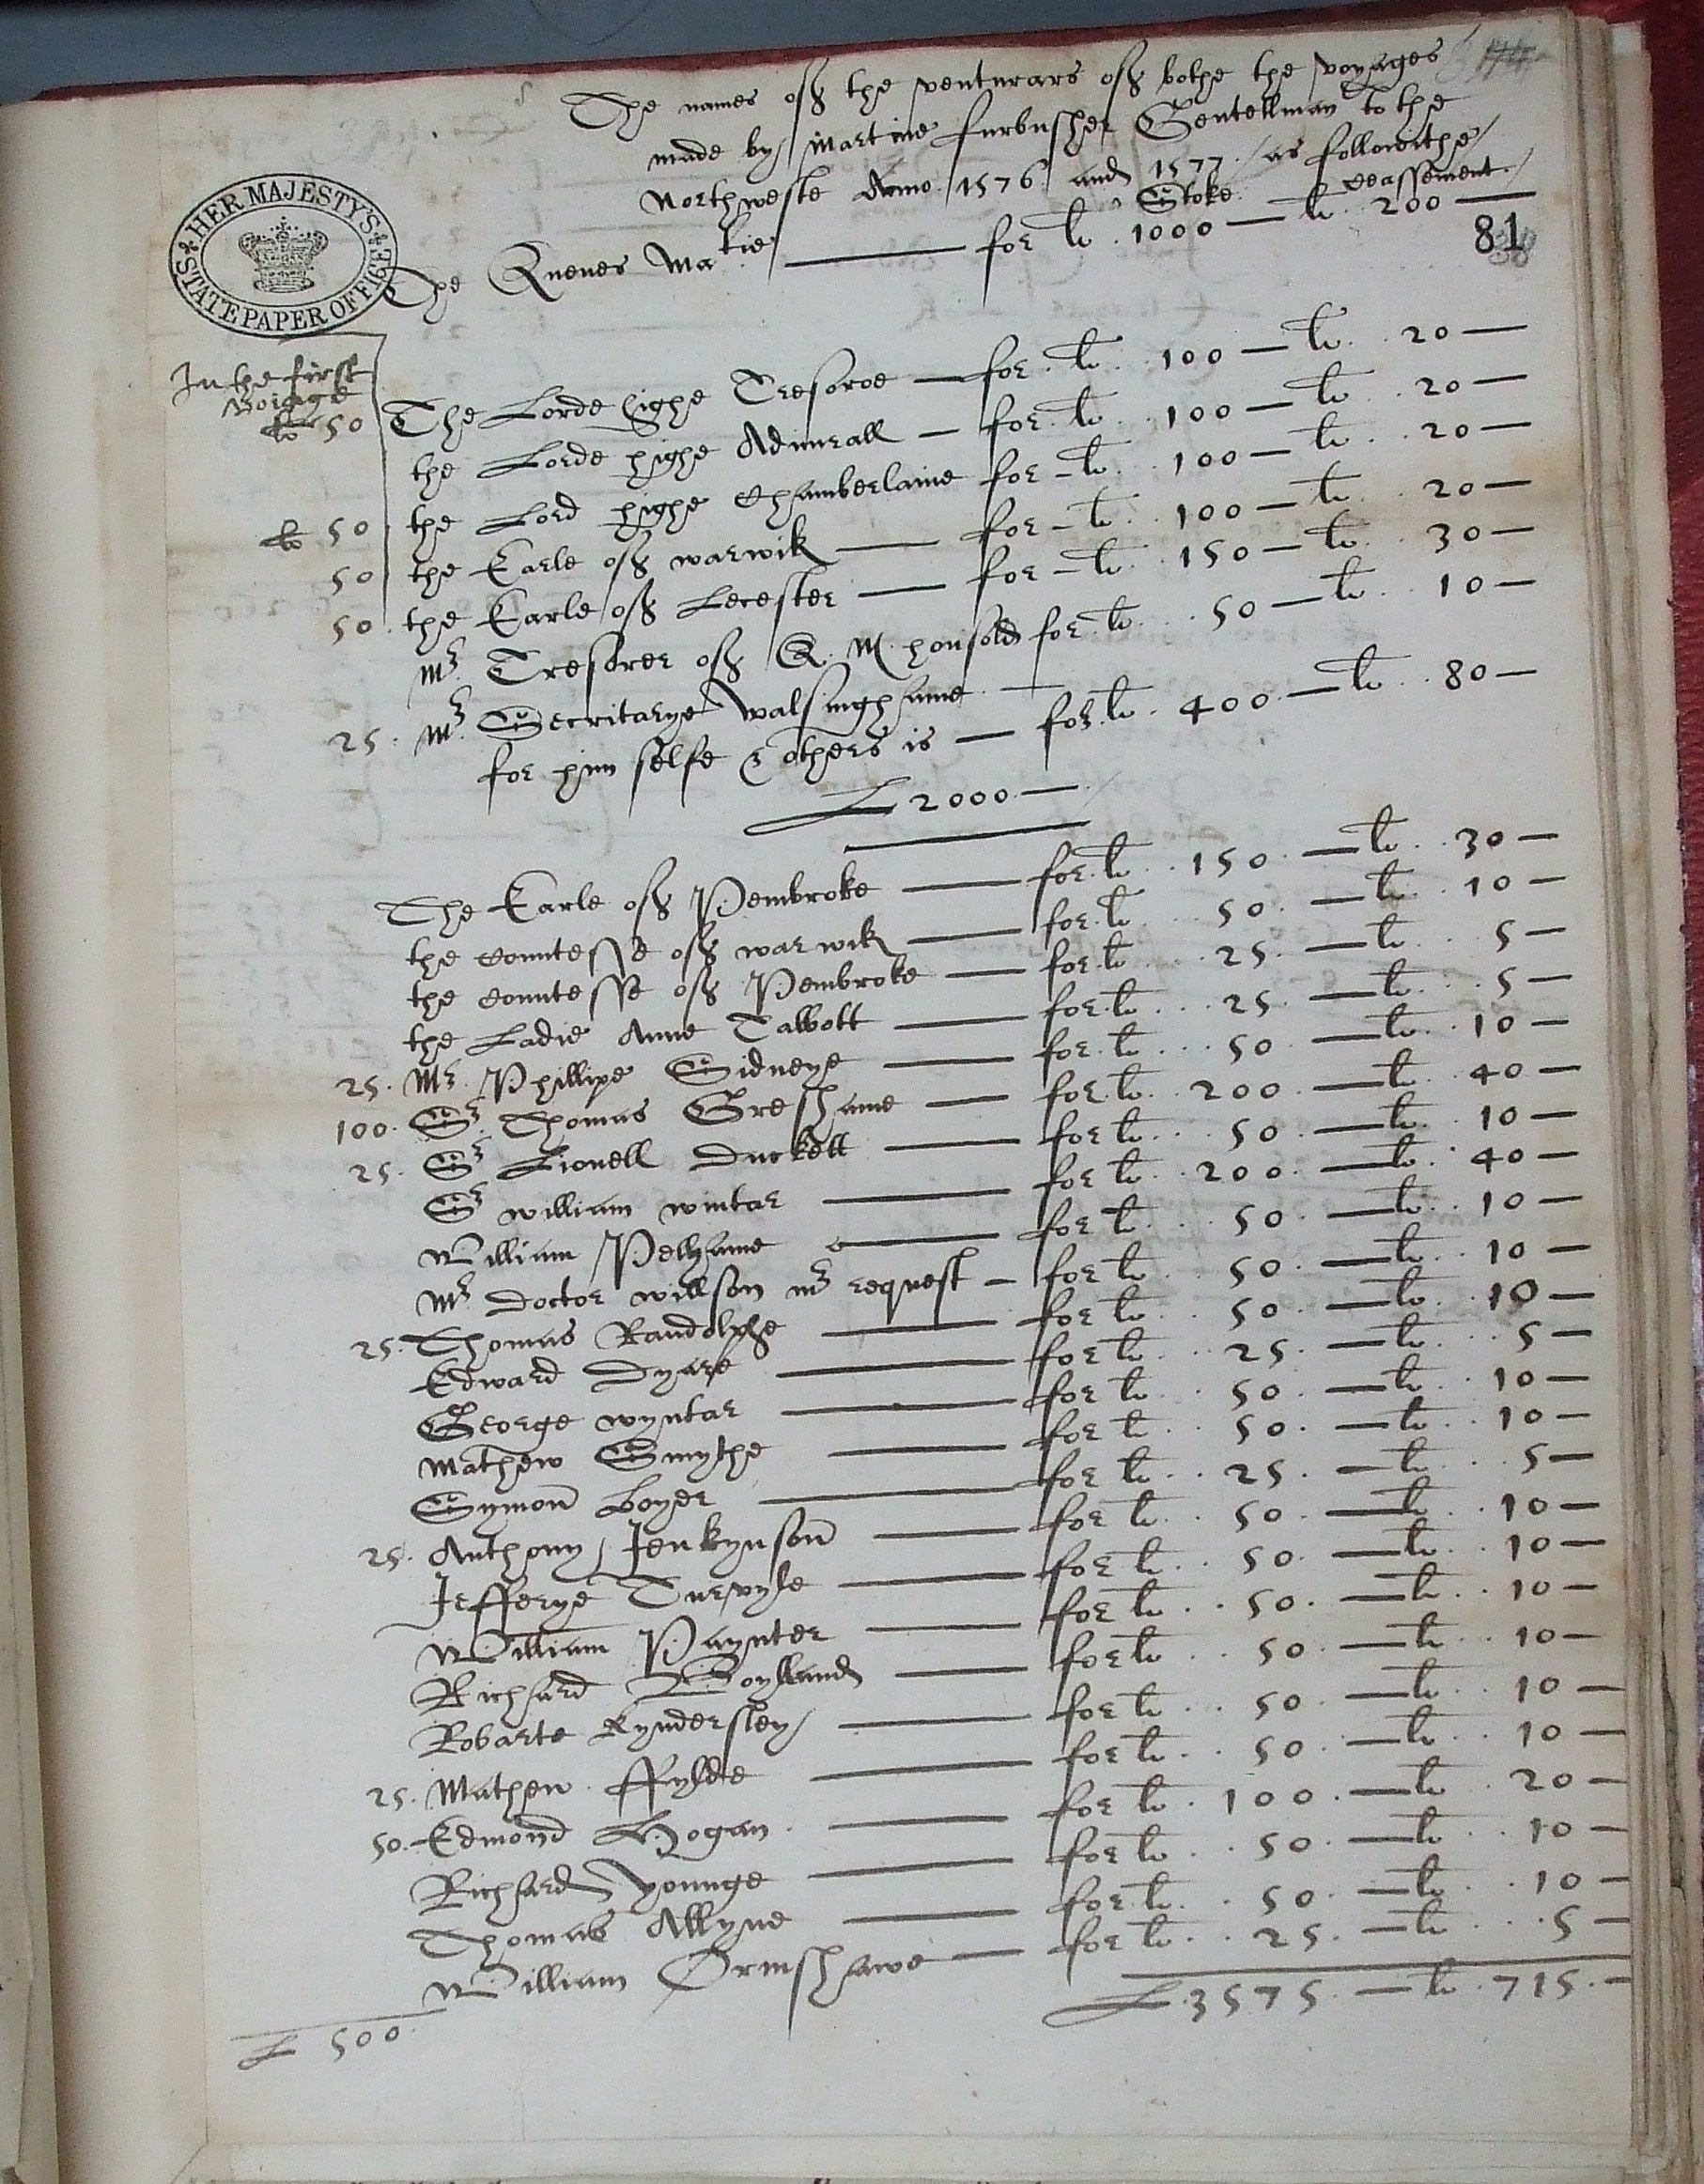 The names off the venturars off bothe the voyages
made by Martine furbusher Gentellman to the
Northweste Anno 1576 and 1577 / as followithe /
Stoke. ceassement. /
HER MAJESTY'S STATE PAPER OFFICE
The Quenes Matie — for li. 1000 — li. 200 —
81
In the first
Voiage
li 50 The Lorde highe Tresoror — for. li. 100 — li. 20 —
the Lorde highe Admirall — for. li. 100 — li. 20 —
li 50 the Lord highe Chamberlaine for — li. 100 — li. 20 —
50 the Earle off warwik — for — li. 100 — li. 20 —
50. the Earle off Lecester — for — li. 150 — li. 30 —
Mr. Tresorer off Q. M. housold for. li. 50 — li. 10 —
25. Mr. Secritarye Walsinghame —
for him selfe & others is — for. li. 400. — li. 80 —
£ 2000 —
The Earle off Pembroke — for. li. 150. — li. 30 —
the countesse off warwik — for. li 50. — li. 10 —
the countesse off Pembroke — for. li 25. — li. 5 —
the Ladie Anne Talbott — for. li. 25. — li. 5 —
25. Mr. Phillipe Sidneye — for. li. 50. — li. 10 —
100. Sr. Thomas Gresshame — for. li. 200. — li. 40 —
25. Sr Lionell Duckett — for li. 50. — li. 10 —
Sr william wintar — for li. 200. — li. 40 —
William Pellhame — for li. 50. — li. 10 —
Mr Doctor willson mr request — for li. 50. — li. 10 —
25. Thomas Randolphe — for li. 50. — li. 10 —
Edward Dyare — for li. 25. — li. 5 —
George wyntar — for li. 50. — li. 10 —
Mathew Smythe — for li. 50. — li. 10 —
Symon Boyer — for li. 25. — li. 5 —
25. Anthony Jenkynson — for li. 50. — li. 10 —
Jefferye Turvyle — for li. 50. — li. 10 —
William Paynter — for li. 50. — li. 10 —
Richard Boylland — for li. 50. — li. 10 —
Robarte Kyndersley — for li. 50. — li. 10 —
25. Mathew ffylde — for li. 50. — li. 10 —
50. Edmond Hogan. — for li. 100. — li. 20 —
Richard Younge — for li. 50. — li. 10 —
Thomas Allyne — for li. 50. — li. 10 —
William Ormshawe — for li. 25. — li. 5 —
£ 500. £ 3575. — li. 715. —